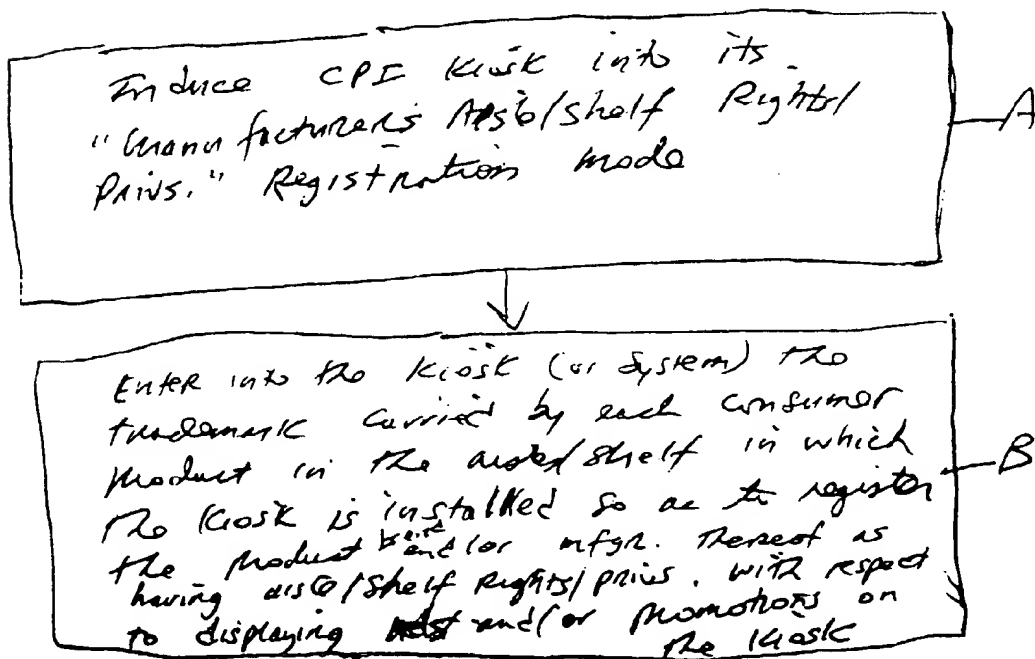 Induce CPI Kiosk into its
"Manufacturer's Aisle/Shelf Rights/
Privs." Registration mode
A
Enter into the Kiosk (or system) the
trademark carried by each consumer
product in the aisle/shelf in which
the Kiosk is installed so as to register
the product and/or mfgr. thereof as
having aisle/shelf Rights/privs. with respect
to displaying and/or promotions on
the Kiosk
B